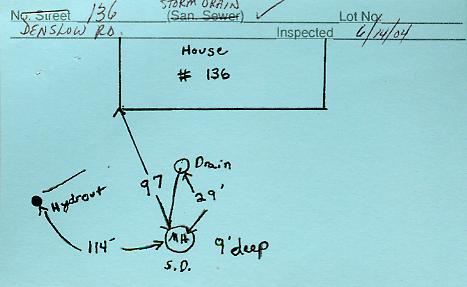 STORM DRAIN
No. Street 136 (San. Sewer) ✓ Lot No.
DENSLOW RD. Inspected 6/14/04
House
# 136
Drain
97
29'
Hydrant
114'
MH
9' deep
S.D.